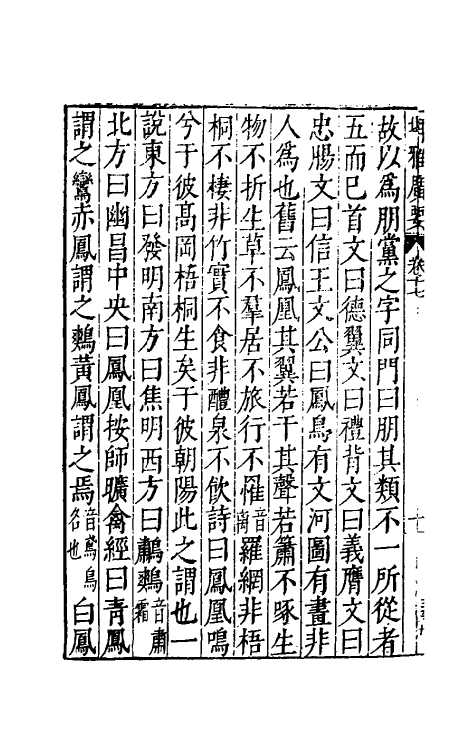 埤雅廣要 卷十七
故以爲朋黨之字同門曰朋其類不一所從者
五而已首文曰德翼文曰禮背文曰義膺文曰
忠膓文曰信王文公曰鳳鳥有文河圖有畫非
人爲也舊云鳳凰其翼若干其聲若簫不啄生
物不折生草不羣居不旅行不罹音離羅網非梧
桐不棲非竹實不食非醴泉不飲詩曰鳳凰鳴
兮于彼高岡梧桐生矣于彼朝陽此之謂也一
說東方曰發明南方曰焦明西方曰鷫鷞音肅霜
北方曰幽昌中央曰鳳凰按師曠禽經曰青鳳
謂之鸞赤鳳謂之鶉黃鳳謂之焉音鳶鳥名也白鳳